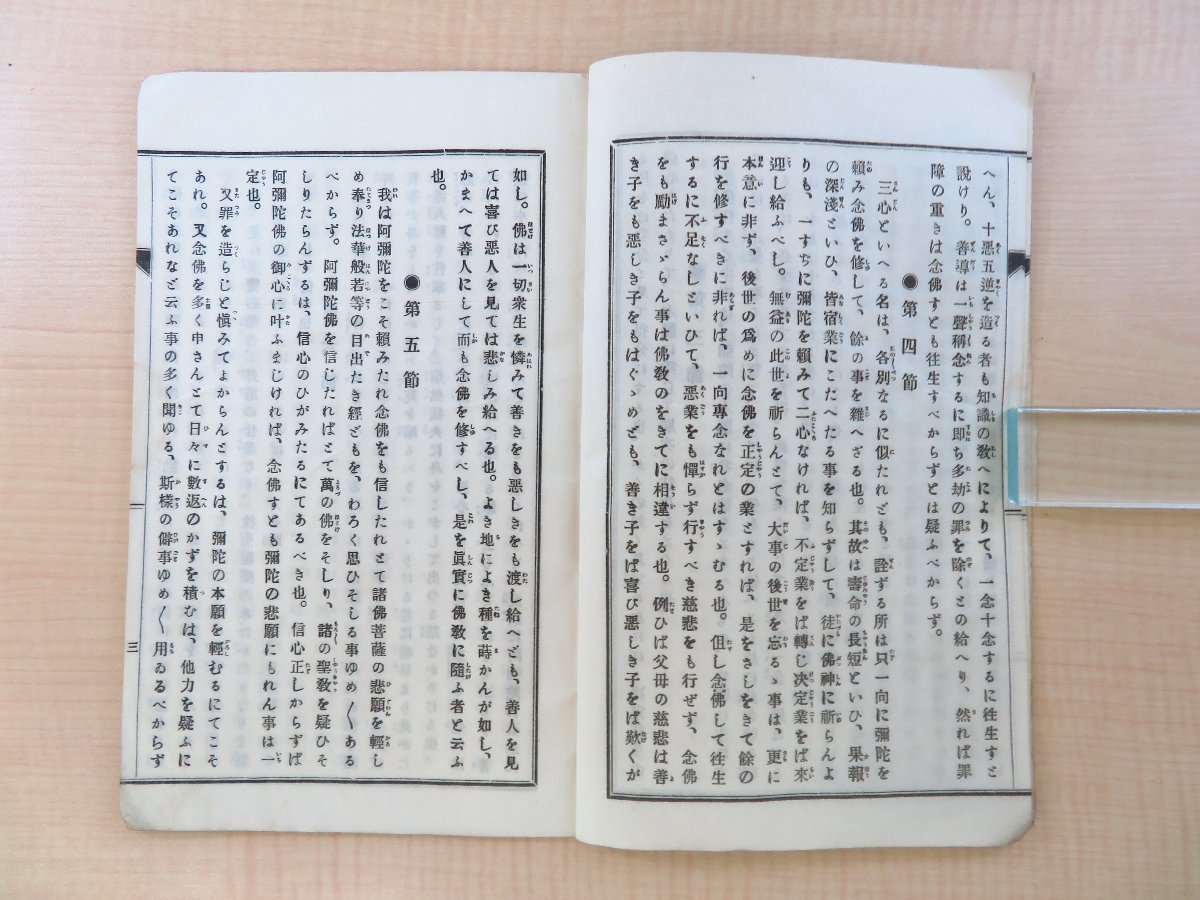 へん、十惡五逆を造る者も知識の敎へによりて、一念十念するに往生すと
說けり。善導は一聲稱念するに即ち多劫の罪を除くとの給へり、然れば罪
障の重きは念佛すとも往生すべからずとは疑ふべからず。
●第四節
三心といへる名は、各別なるに似たれども、詮ずる所は只一向に彌陀を
賴み念佛を修して、餘の事を雜へざる也。其故は壽命の長短といひ、果報
の深淺といひ、皆宿業にこたへたる事を知らずして、徒に佛神に祈らんよ
りも、一すぢに彌陀を賴みて二心なければ、不定業をば轉じ決定業をば來
迎し給ふべし。無益の此世を祈らんとて、大事の後世を忘るゝ事は、更に
本意に非ず、後世の爲めに念佛を正定の業とすれば、是をさしをきて餘の
行を修すべきに非れば、一向專念なれとはすゝむる也。但し念佛して往生
するに不足なしといひて、惡業をも憚らず行すべき慈悲をも行ぜず、念佛
をも勵まさゞらん事は佛敎のをきてに相違する也。例ひば父母の慈悲は善
き子をも惡しき子をもはぐゝめども、善き子をば喜び惡しき子をば歎くが
如し。佛は一切衆生を憐みて善きをも惡しきをも渡し給へども、善人を見
ては喜び惡人を見ては悲しみ給へる也。よき地によき種を蒔かんが如し、
かまへて善人にして而も念佛を修すべし、是を眞實に佛敎に隨ふ者と云ふ
也。
●第五節
我は阿彌陀をこそ賴みたれ念佛をも信したれとて諸佛菩薩の悲願を輕し
め奉り法華般若等の目出たき經どもを、わろく思ひそしる事ゆめ〱ある
べからず。阿彌陀佛を信じたればとて萬の佛をそしり、諸の聖敎を疑ひそ
しりたらんずるは、信心のひがみたるにてあるべき也。信心正しからずば
阿彌陀佛の御心に叶ふまじければ、念佛すとも彌陀の悲願にもれん事は一
定也。
又罪を造らじと愼みてよからんとするは、彌陀の本願を輕むるにてこそ
あれ。又念佛を多く申さんとて日々に數返のかずを積むは、他力を疑ふに
てこそあれなど云ふ事の多く聞ゆる、斯樣の僻事ゆめ〱用ゐるべからず
三